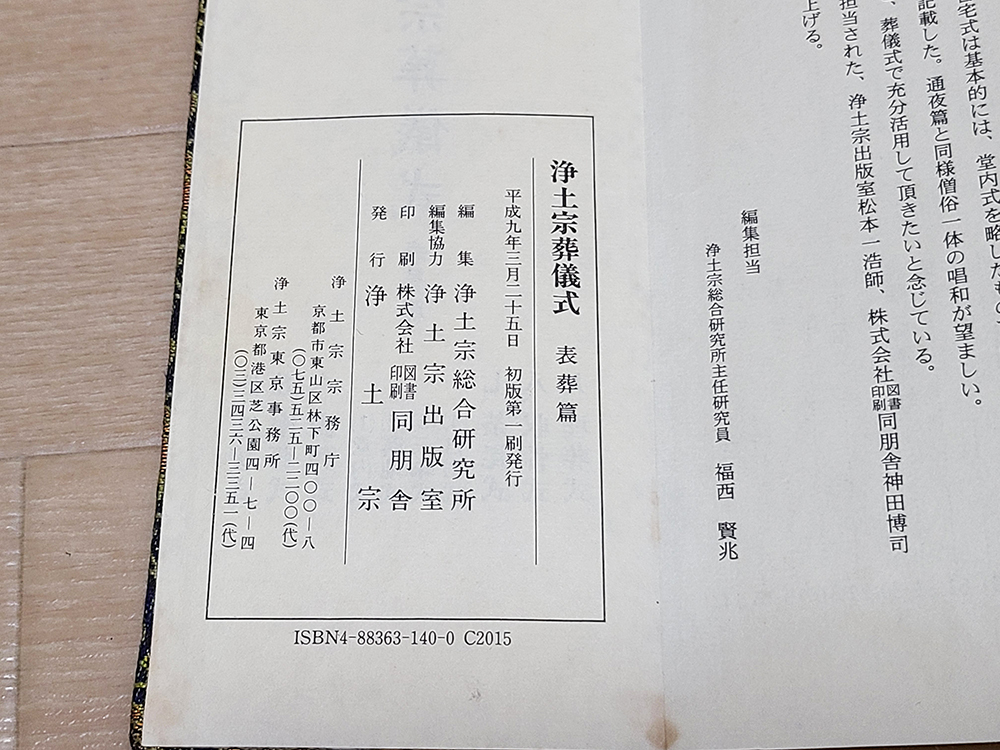 宅式は基本的には、堂内式を略したもの
記載した。通夜篇と同様僧俗一体の唱和が望ましい。
、葬儀式で充分活用して頂きたいと念じている。
担当された、浄土宗出版室松本一浩師、株式会社図書印刷同朋舎神田博司
上げる。
編集担当
浄土宗総合研究所主任研究員 福西 賢兆
浄土宗葬儀式 表葬篇
平成九年三月二十五日 初版第一刷発行
編集 浄土宗総合研究所
編集協力 浄土宗出版室
印刷 株式会社図書印刷同朋舎
発行 浄土宗
浄土宗宗務庁
京都市東山区林下町四〇〇―八
(〇七五)五二五―二二〇〇(代)
浄土宗東京事務所
東京都港区芝公園四―七―四
(〇三)三四三六―三三五一(代)
ISBN4-88363-140-0 C2015